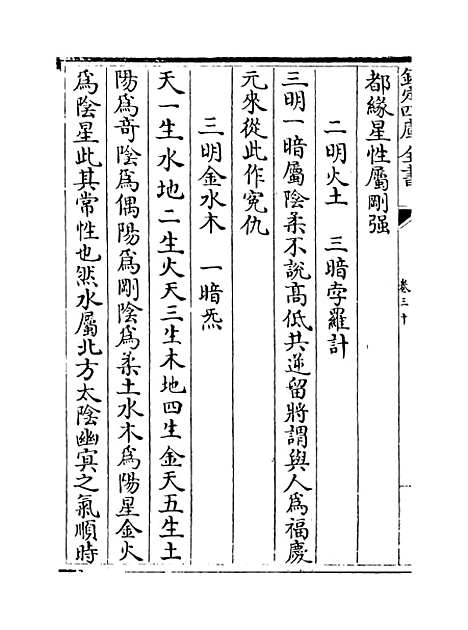 欽定四庫全書
卷三十
都緣星性屬剛强
二明火土　三暗孛羅計
三明一暗屬陰柔不說高低共逆留將謂與人為福慶
元來從此作寃仇
三明金水木　一暗炁
天一生水地二生火天三生木地四生金天五生土
陽為竒陰為偶陽為剛陰為柔土水木為陽星金火
為陰星此其常性也然水屬北方太陰幽㝠之氣順時